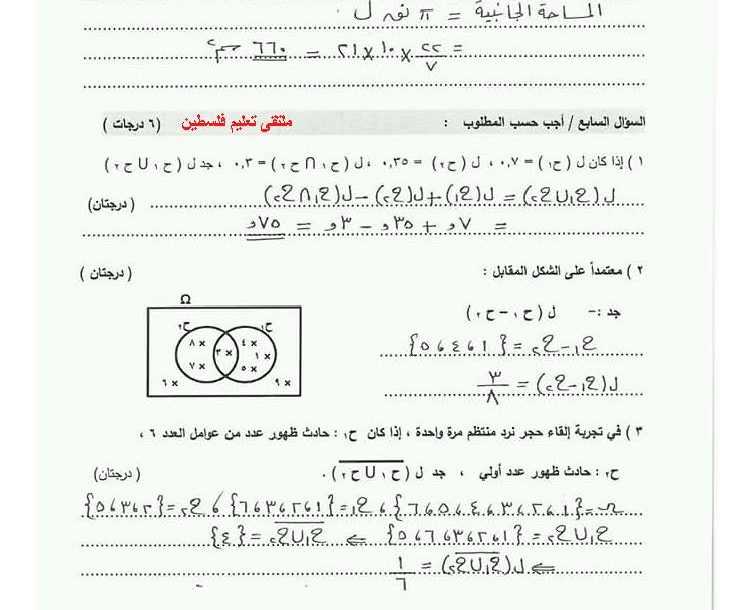 المساحة الجانبية = π نق ل
= ٢٢/٧ × ١٠ × ٢١ = ٦٦٠ سم٢
السؤال السابع / أجب حسب المطلوب : ملتقى تعليم فلسطين (٦ درجات )
١ ) إذا كان ل ( ح١ ) = ٠,٧ ، ل ( ح٢ ) = ٠,٣٥ ، ل ( ح١ ∩ ح٢ ) = ٠,٣ ، جد ل ( ح١ ∪ ح٢ )
ل(ح١∪ح٢) = ل(ح١) + ل(ح٢) - ل(ح١∩ح٢) ( درجتان)
= ٧و + ٣٥و - ٣و = ٧٥و
٢ ) معتمداً على الشكل المقابل : ( درجتان )
جد :- ل ( ح١ - ح٢ )
Ω
ح٢ ح١
٨ × ٤ ×
٣ × ١ ×
٧ × ٥ ×
٦ × ٩ ×
ح١-ح٢ = {١،٤،٥}
ل(ح١-ح٢) = ٣/٨
٣ ) في تجربة إلقاء حجر نرد منتظم مرة واحدة ، إذا كان ح١ : حادث ظهور عدد من عوامل العدد ٦ ،
ح٢ : حادث ظهور عدد أولي ، جد ل ( ح١ ∪ ح٢ ) . (درجتان)
Ω = {١،٢،٣،٤،٥،٦} ، ح١ = {١،٢،٣،٦} ، ح٢ = {٢،٣،٥}
ح١∪ح٢ = {١،٢،٣،٦،٥} ⇐ ح١∪ح٢ = {٤}
⇐ ل(ح١∪ح٢) = ١/٦